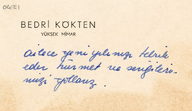 BEDRİ KÖKTEN
YÜKSEK MİMAR
ailece yeni yılınızı tebrik
eder hürmet ve sevgileri-
mizi yollarız.